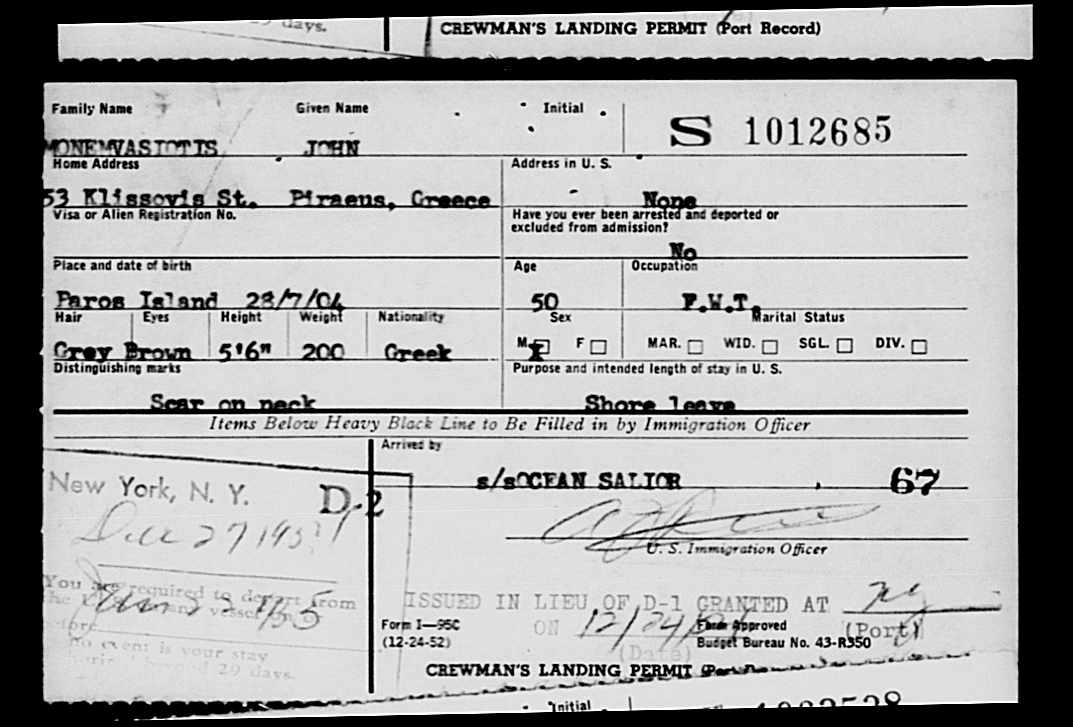 days.
CREWMAN'S LANDING PERMIT (Port Record)
Family Name Given Name Initial
S 1012685
MONEMVASIOTIS JOHN
Home Address Address in U. S.
53 Klissovis St. Piraeus, Greece None
Visa or Alien Registration No. Have you ever been arrested and deported or
excluded from admission?
No
Place and date of birth Age Occupation
Paros Island 28/7/04 50 F.W.T.
Hair Eyes Height Weight Nationality Sex Marital Status
Grey Brown 5'6" 200 Greek M X F MAR. WID. SGL. DIV.
Distinguishing marks Purpose and intended length of stay in U. S.
Scar on neck Shore leave
Items Below Heavy Black Line to Be Filled in by Immigration Officer
Arrived by
s/sOCEAN SALIOR 67
New York, N. Y. D-2
Dec 27 1954
U. S. Immigration Officer
You are required to depart from
the vessel on or
before
no event is your stay
beyond 29 days.
ISSUED IN LIEU OF D-1 GRANTED AT NY
ON 12/24/54 (Port)
(Date)
Form I—95C
(12-24-52)
Form Approved
Budget Bureau No. 43-R350
CREWMAN'S LANDING PERMIT
Initial